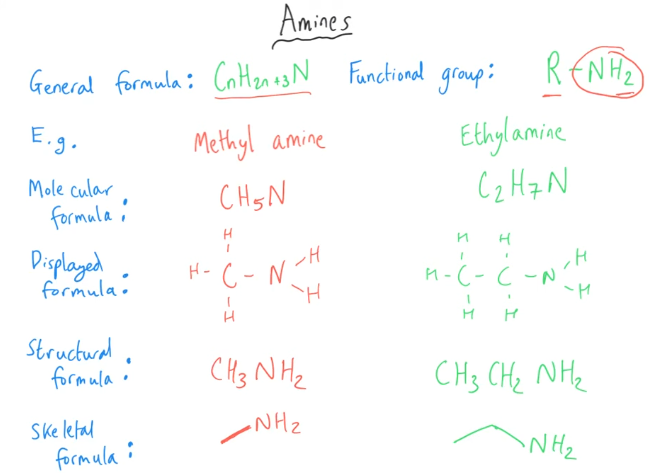 Amines
General formula: CnH2n+3N Functional group: R-NH2
E.g. Methyl amine Ethylamine
Molecular formula: CH5N C2H7N
Displayed formula:
H H H
H - C - N H H - C - C - N H
H H H H H
Structural formula: CH3NH2 CH3CH2NH2
Skeletal formula: NH2 NH2